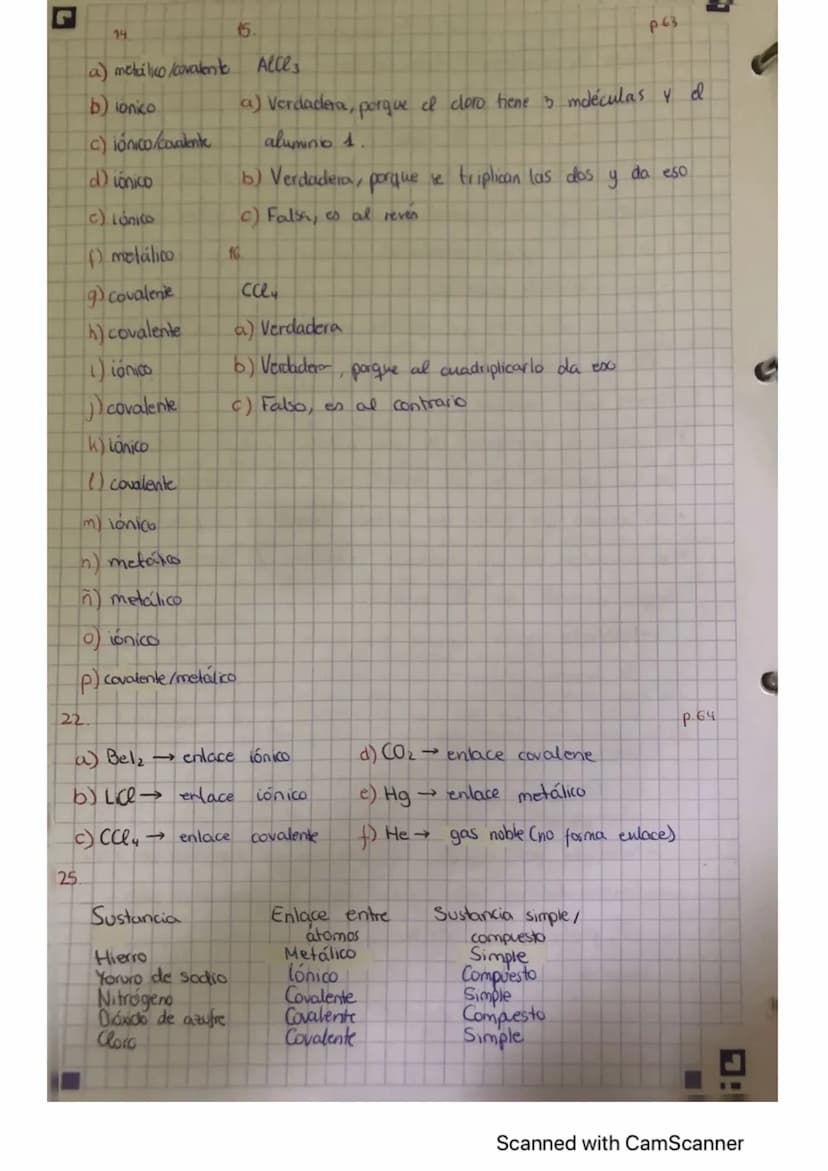 p63
14 15.
a) metálico/covalente AlCl3
b) iónico a) Verdadera, porque el cloro tiene 3 moléculas y el
c) iónico/covalente aluminio 1.
d) iónico b) Verdadera, porque se triplican las dos y da eso
e) iónico c) Falsa, es al revés
f) metálico 16
g) covalente CCl4
h) covalente a) Verdadera
i) iónico b) Verdadera, porque al cuadriplicarlo da eso
j) covalente c) Falso, es al contrario
k) iónico
l) covalente
m) iónico
n) metálico
ñ) metálico
o) iónico
p) covalente/metálico
22. p.64
a) BeI2 → enlace iónico d) CO2 → enlace covalene
b) LiCl → enlace iónico e) Hg → enlace metálico
c) CCl4 → enlace covalente f) He → gas noble (no forma enlace)
25.
Sustancia Enlace entre Sustancia simple/
átomos compuesto
Hierro Metálico Simple
Yoruro de sodio Iónico Compuesto
Nitrógeno Covalente Simple
Dióxido de azufre Covalente Compuesto
Cloro Covalente Simple
Scanned with CamScanner